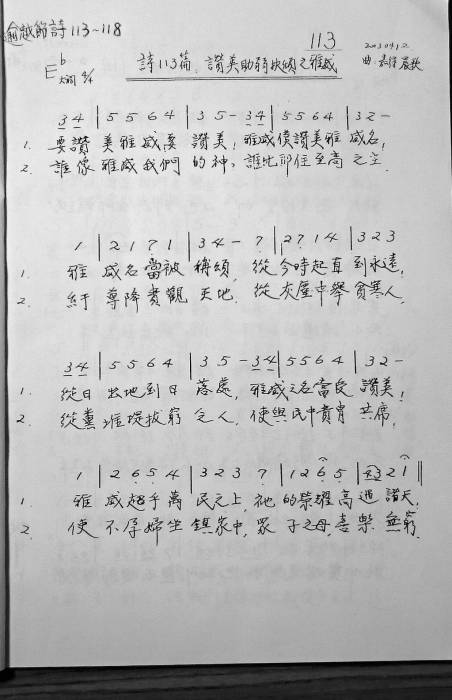 逾越節詩113~118
113
20230412
E♭大調 4/4
詩113篇、讚美助弱扶傾之雅威
曲:
3 4 | 5 5 6 4 | 3 5 - 3 4 | 5 5 6 4 | 3 2 -
1. 要讚 美雅威要 讚美, 雅威僕讚美雅 威名,
2. 誰像 雅威我們 的神, 誰比那住至高 之主.
1 | 2 1 7 1 | 3 4 - 7 | 2 7 1 4 | 3 2 3
1. 雅 威名當被 稱頌, 從 今時起直 到永遠,
2. 紆 尊降貴觀 天地. 從 灰塵中舉 貧寒人.
3 4 | 5 5 6 4 | 3 5 - 3 4 | 5 5 6 4 | 3 2 -
1. 從日 出地到日 落處, 雅威之名當受 讚美!
2. 從糞 堆提拔窮 乏人, 使與民中貴胄 共席,
1 | 2 6 5 4 | 3 2 3 7 | 1 2 6 5 | 4 3 2 1 ‖
1. 雅 威超乎萬 民之上, 祂 的榮耀高 過 諸天.
2. 使 不孕婦坐 鎮家中, 眾 子之母,喜 樂 無窮.